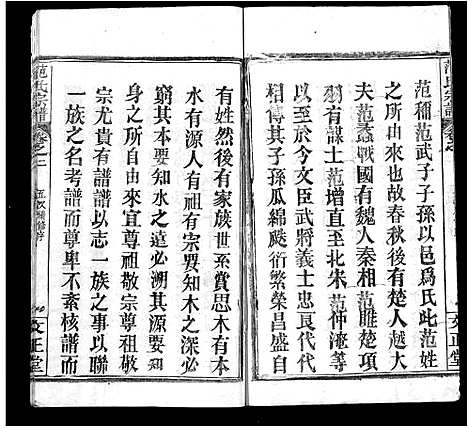 范氏宗譜
卷之一
范稱范武子子孫以邑爲氏此范姓
之所由來也故春秋後有楚人大
夫范蠡戰國有魏人秦相范睢楚項
羽有謀士范增直至北宋范仲淹等
以至于今文臣武將義士忠良代代
相傳其子孫瓜綿颷衍繁榮昌盛自
文正堂
有姓然後有家族世系賞思木有本
水有源人有祖有宗要知木之深必
窮其本要知水之遠必溯其源要知
身之所自由來宜尊祖敬宗尊祖敬
宗尤有譜譜以志一族之事以聯
一族之名考譜而尊卑不紊核譜而
范氏宗譜
卷之一
五次續修序
文正堂